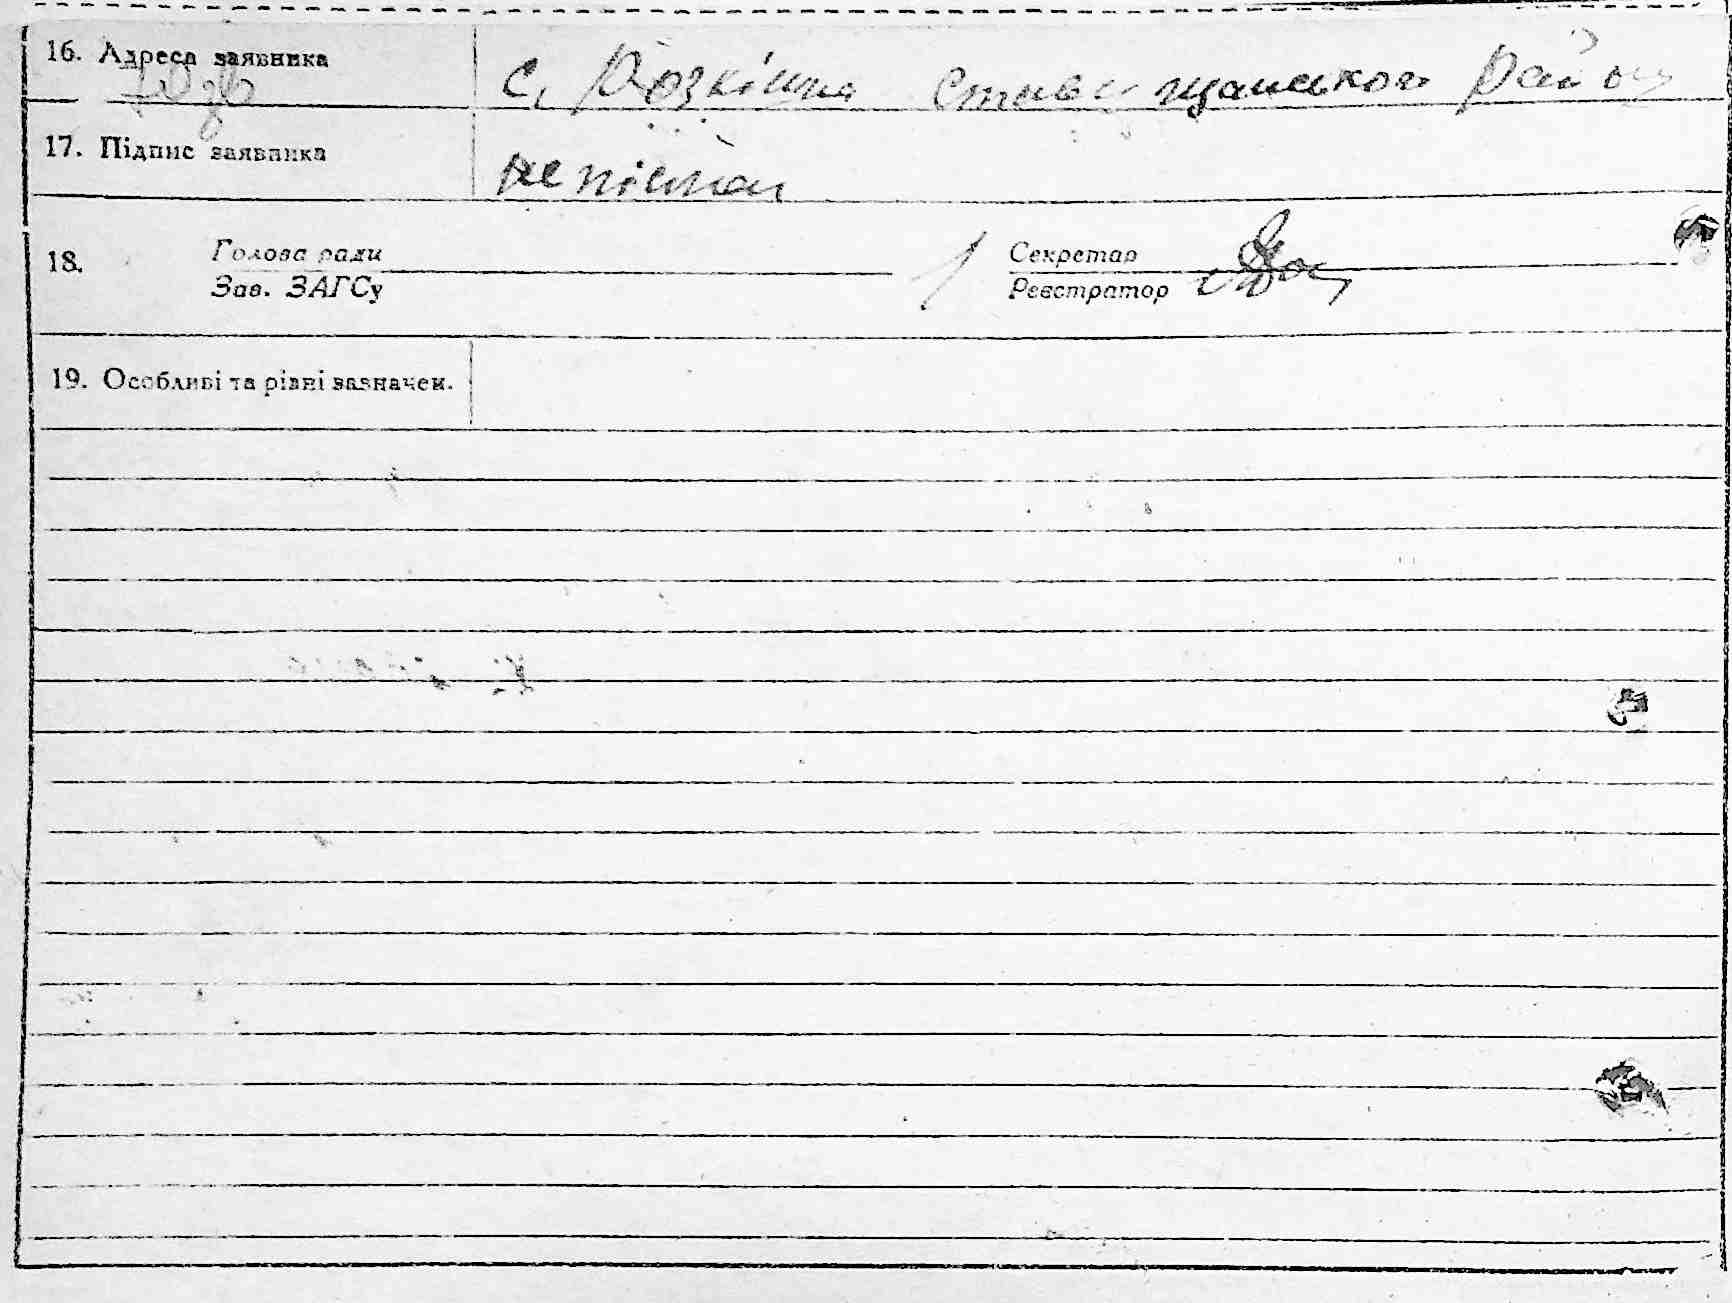 16. Адреса заявника с. Розкішна Ставищанського Району
17. Підпис заявника
18. Голова ради Секретар
Зав. ЗАГСу Реєстратор
19. Особливі та різні зазначен.